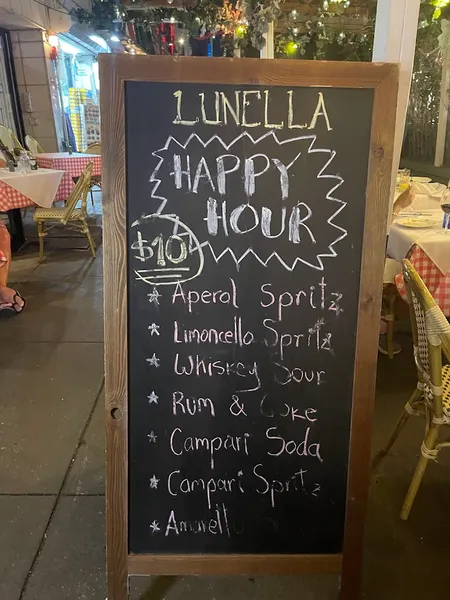 LUNELLA
HAPPY
HOUR
$10
* Aperol Spritz
* Limoncello Spritz
* Whiskey Sour
* Rum & Coke
* Campari Soda
* Campari Spritz
*